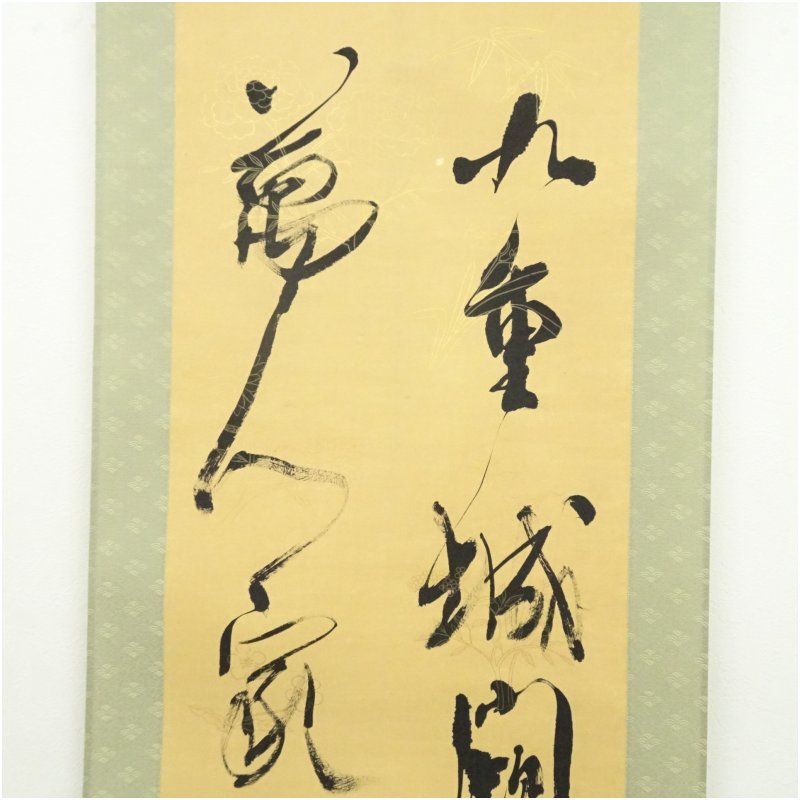 九重城
萬人家